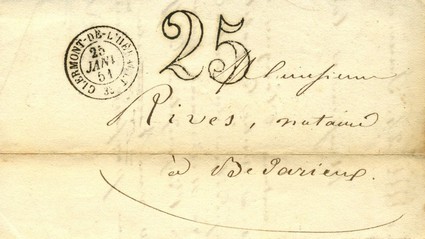 CLERMONT-DE-L'HERAULT
25
JANV
51
25
Monsieur
Rives, notaire
à Bedarieux.